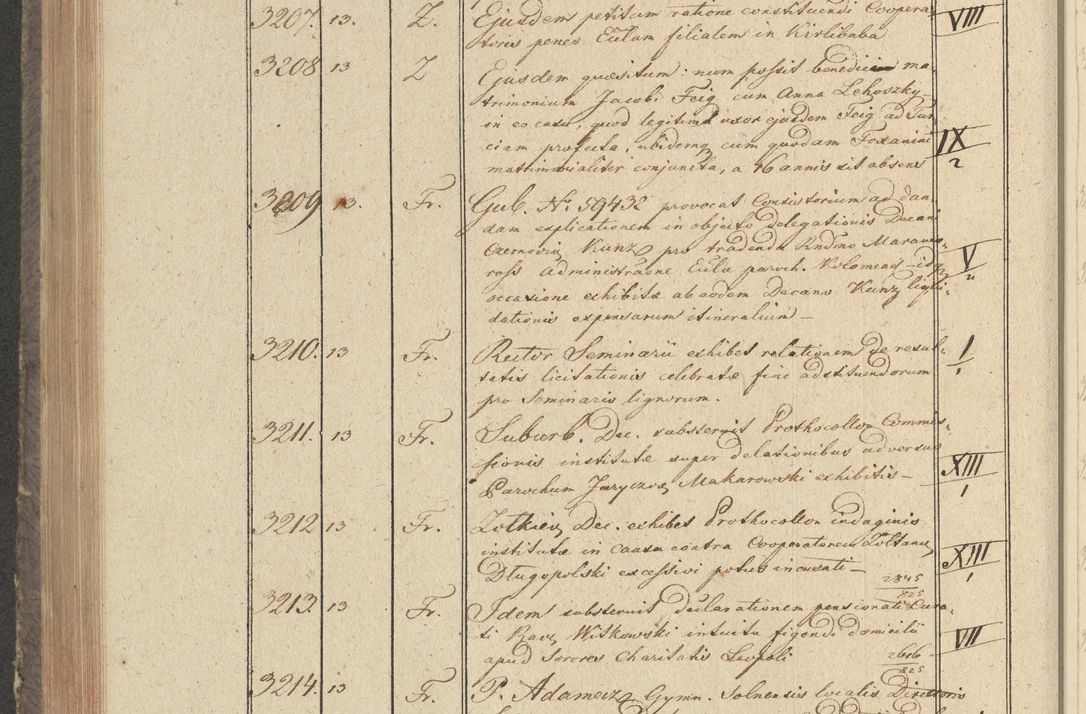 3207. 13. Z. Ejusdem petitum ratione constituendi Coopera
toris penes Eulam filialem in Kirlibaba VIII
3208 13 Z Ejusdem quæsitum: num possit benedici ma
trimonium Jacobi Feig cum Anna Lehoszky
in eo casu, quod legitima uxor ejusdem Feig ad Tur
ciam profecta, ibidemq cum quodam IX
matrimonialiter conjuncta, a 16 annis sit absens 2
3209 13. Fr. Gub. No 59432 provocat Consistorium ad dan
dam explicationem in objecto delegationis Decani
Czernoviz Kunz pro tradenda Rndmo Maramo-
ross administratione Eulæ paroch. Kolomeas V
occasione exhibitæ ab eodem Decano Kunz liqui-
dationis expensarum itineralium
3210. 13 Fr. Rector Seminarii exhibet relationem de resul- I
tatis licitationis celebratæ fine adstituendorum 1
pro Seminario lignorum.
3211. 13 Fr. Suburb. Dec. substernit Prothocollon Commis-
sionis institutæ super delationibus adversus
Parochum Jaryczov Makarowski exhibitis XIII 1
3212 13 Fr. Zolkiev Dec. exhibet Prothocollon indaginis
institutæ in causa contra Cooperatorem Zoltanc XIII
Długopolski excessivi potus incusati 1
2845
825
3213. 13 Fr. Idem substernit declarationem pensionati Cura-
ti Rav Witkowski intuitu figendi domicilii VII
apud Sorores Charitatis Leopoli
2606
825
3214. 13 Fr. P. Adamecz Gymn. Solnensis localis Directoris